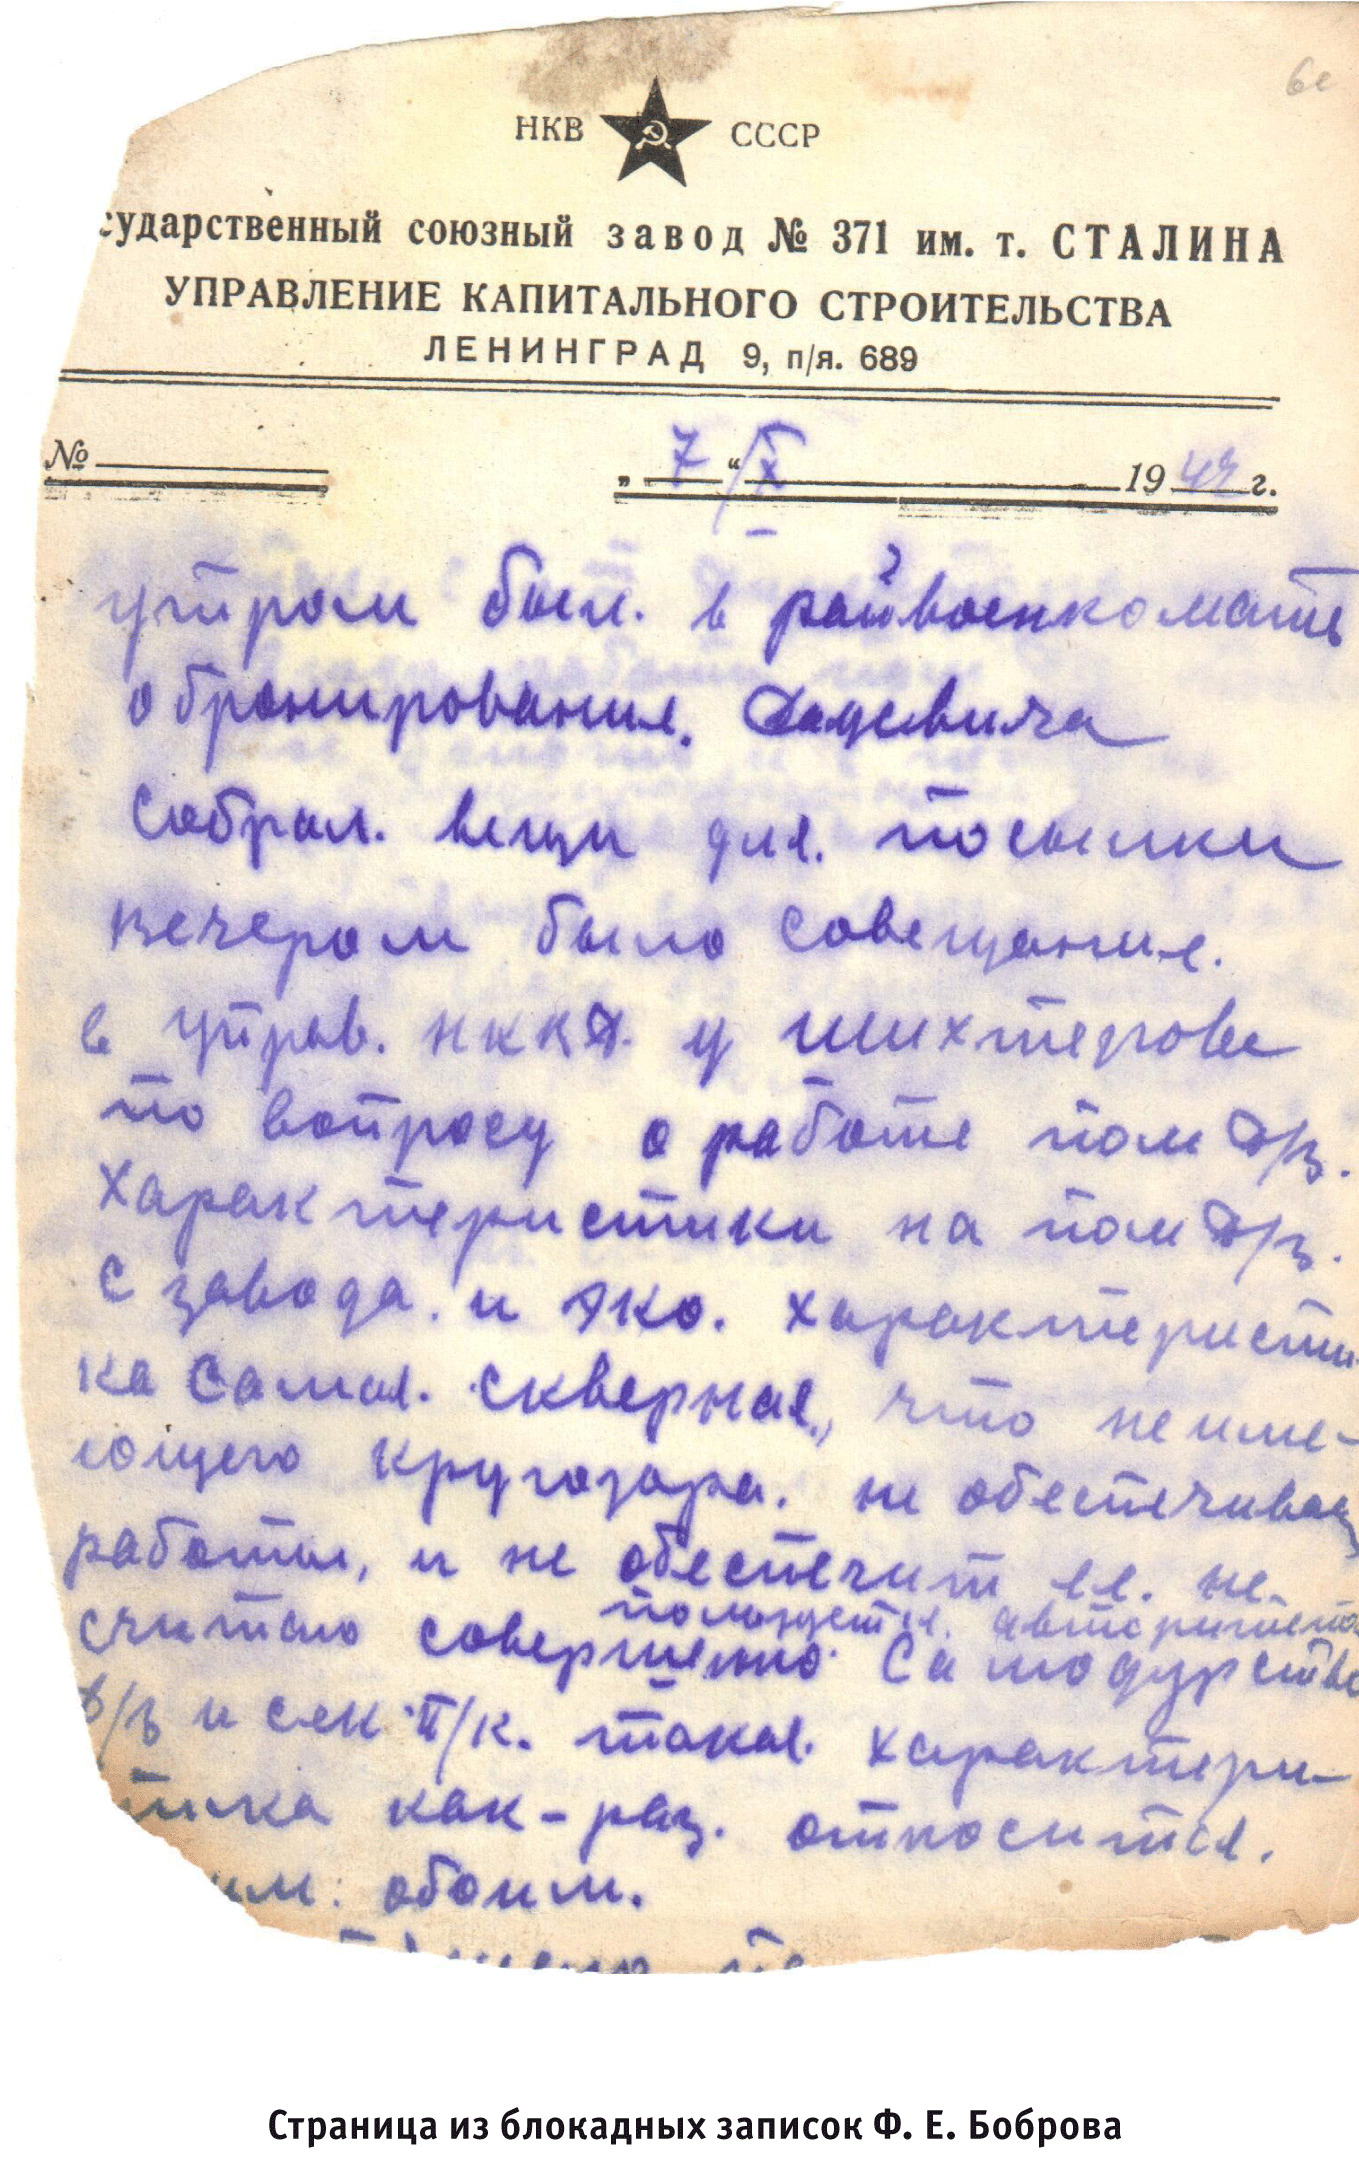 НКВ СССР
сударственный союзный завод № 371 им. т. СТАЛИНА
УПРАВЛЕНИЕ КАПИТАЛЬНОГО СТРОИТЕЛЬСТВА
ЛЕНИНГРАД 9, п/я. 689
№ „ 7 “ /X 19 г.
утром был. в райвоенкомать
о бронирования.
Собрал. вещи для. посылки
вечером было совещание.
в управ. у Шихтерова
по вопросу о работе пом Д/з.
Характеристики на пом Д/з.
с завода. и Характеристи
ка Самая. скверная., что не име-
ющего кругозора. не обеспечивающ
работы, и не обеспечит ее. не.
пользуется. авторитетом
считаю совершенно Самодурство
Д/з и сек П/к. такая. характери-
тика как-раз. относится.
им: обоим.
Страница из блокадных записок Ф. Е. Боброва